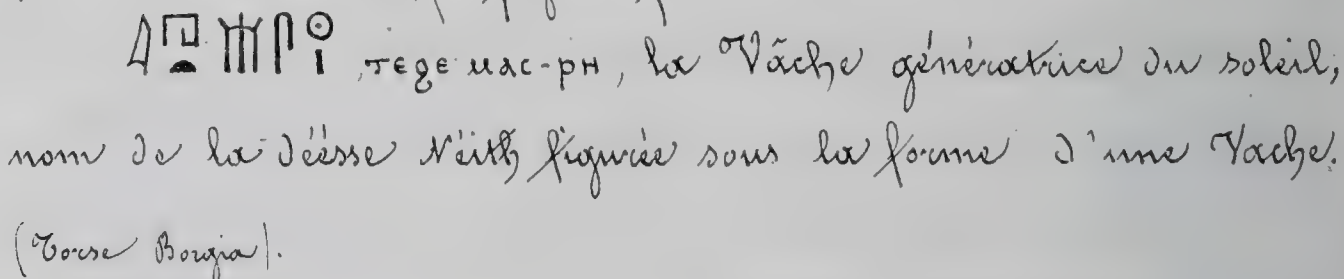 𓇋𓉔𓏏𓄟𓋴𓇳𓏤 ⲧⲉϩⲉ ⲙⲁⲥ-ⲣⲏ, la Vâche génératrice du soleil;
nom de la déésse Néith figurée sous la forme d'une Vache.
(Torse Borgia).